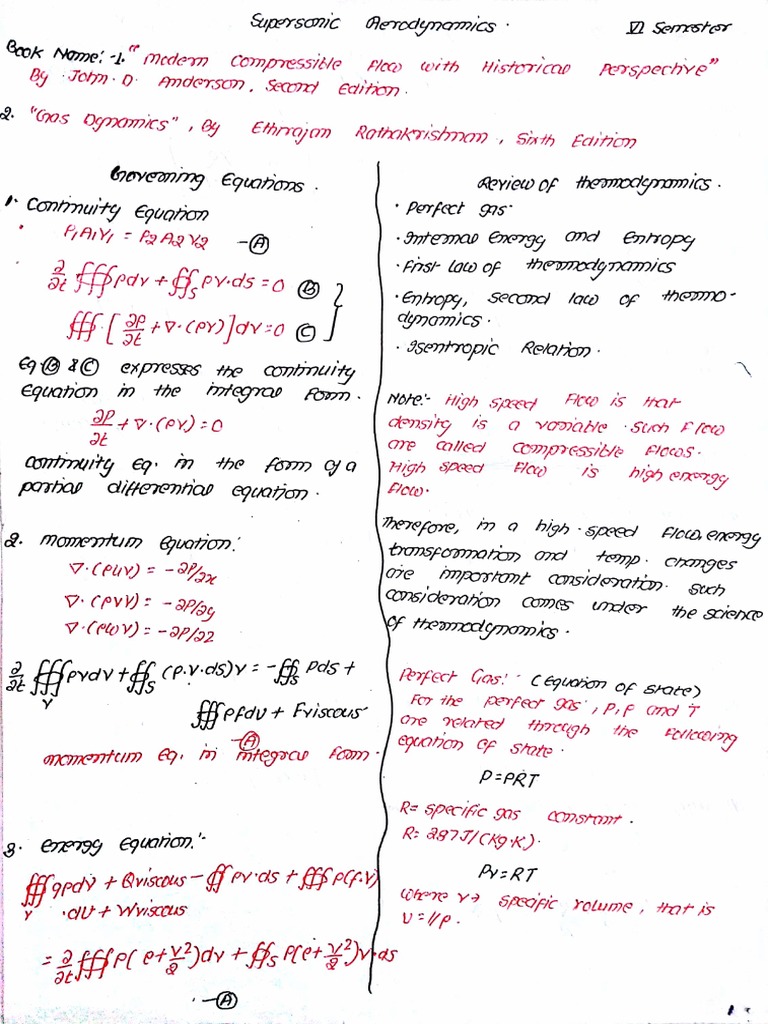 Supersonic Aerodynamics.
VI Semester
Book Name:-1. "Modern Compressible Flow with Historical Perspective"
By John D. Anderson, Second Edition.
2. "Gas Dynamics", By Ethirajan Rathakrishnan, Sixth Edition
Governing Equations.
1. Continuity Equation
ρ₁A₁V₁ = ρ₂A₂V₂ —(A)
∂/∂t ∰ρdv + ∯_S ρv·ds = 0 (B)
∰·[∂ρ/∂t + ∇·(ρv)]dv = 0 (C)
Eq (B) & (C) expresses the continuity
Equation in the integral form.
∂ρ/∂t + ∇·(ρv) = 0
continuity eq. in the form of a
partial differential equation.
2. momentum Equation:
∇·(ρuv) = -∂P/∂x
∇·(ρvv) = -∂P/∂y
∇·(ρwv) = -∂P/∂z
∂/∂t ∰_V ρvdv + ∯_S (ρ.v.ds)v = -∯_S Pds +
∰ρfdv + Fviscous
—(A)
momentum Eq. in integral form.
3. energy Equation:-
∰_V qρdv + Qviscous - ∯ρv·ds + ∰ρ(f.v)
·dv + Wviscous
= ∂/∂t ∰ρ(e+v²/2)dv + ∯_S ρ(e+v²/2)v·ds
—(A)
Review of thermodynamics.
• Perfect gas
• Internal Energy and Entropy
• First law of thermodynamics
• Entropy, second law of thermo-
dynamics.
• Isentropic Relation.
Note:- High speed flow is that
density is a variable. such Flow
are called compressible flows.
High speed flow is high energy
flow.
Therefore, in a high-speed flow, energy
transformation and temp. changes
are important consideration. such
consideration comes under the science
of thermodynamics.
Perfect Gas:- (Equation of state)
For the perfect gas, P, ρ and T
are related through the following
equation of state.
P=ρRT
R= specific gas constant.
R= 287J/(kg·K).
Pv=RT
where v→ specific volume, that is
v=1/ρ.
1